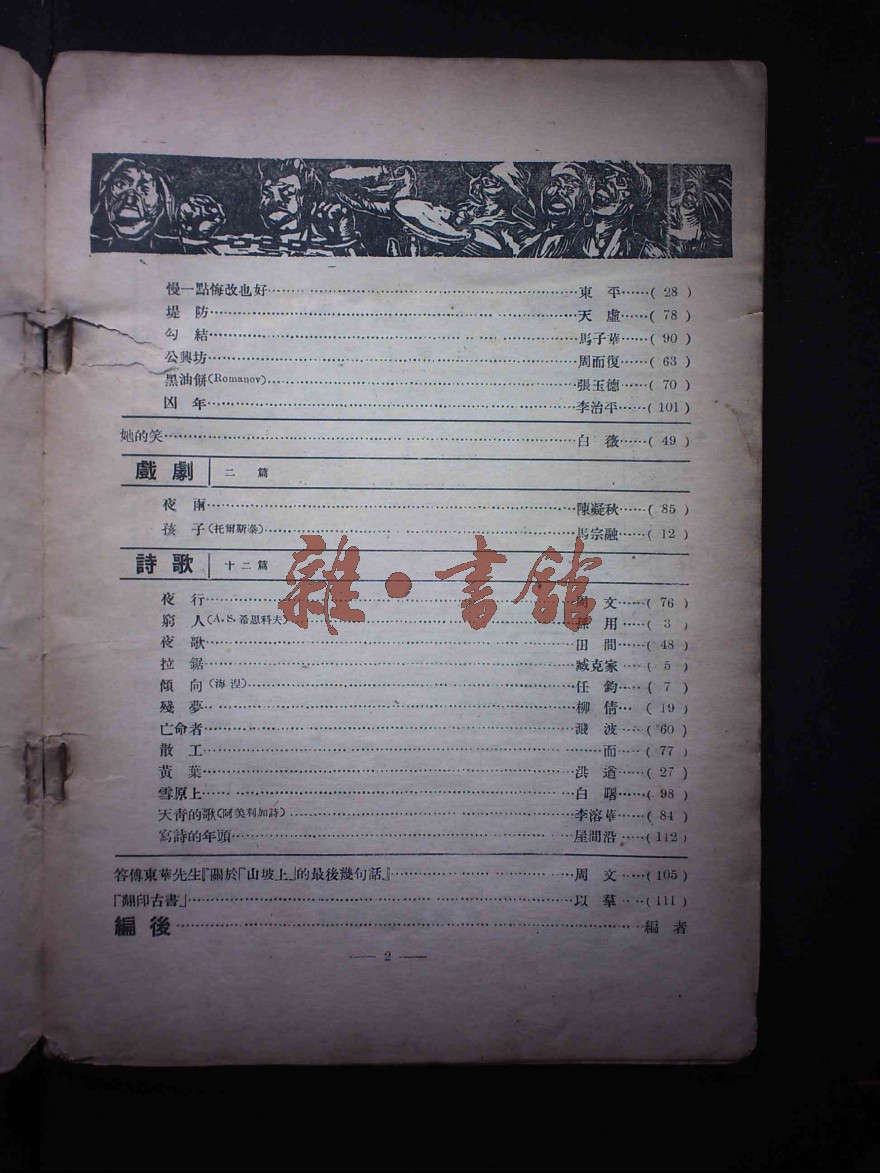 慢一點悔改也好……東 平……( 28 )
堤 防……天 虛……( 78 )
勾 結……馬子華……( 90 )
公興坊……周而復……( 63 )
黑油餅(Romanov)……張玉德……( 70 )
凶 年……李治平……( 101 )
她的笑……白 薇……( 49 )
戲劇 二 篇
夜 雨……陳凝秋……( 85 )
孩 子(托爾斯泰)……馬宗融……( 12 )
詩歌 十二篇
雜·書館
夜 行……周 文……( 76 )
窮 人(A.S.希思科夫)……孫 用……( 3 )
夜 歌……田 間……( 48 )
拉 鋸……臧克家……( 5 )
傾 向(海涅)……任 鈞……( 7 )
殘 夢……柳 倩……( 19 )
亡命者……濺 波……( 60 )
散 工……而……( 77 )
黃 葉……洪 遒……( 27 )
雪原上……白 曙……( 98 )
天青的歌(阿美利加詩)……李溶華……( 84 )
寫詩的年頭……屈間沿……( 112 )
答傅東華先生『關於「山坡上」的最後幾句話』……周 文……( 105 )
「翻印古書」……以 羣……( 111 )
編後……編 者
— 2 —